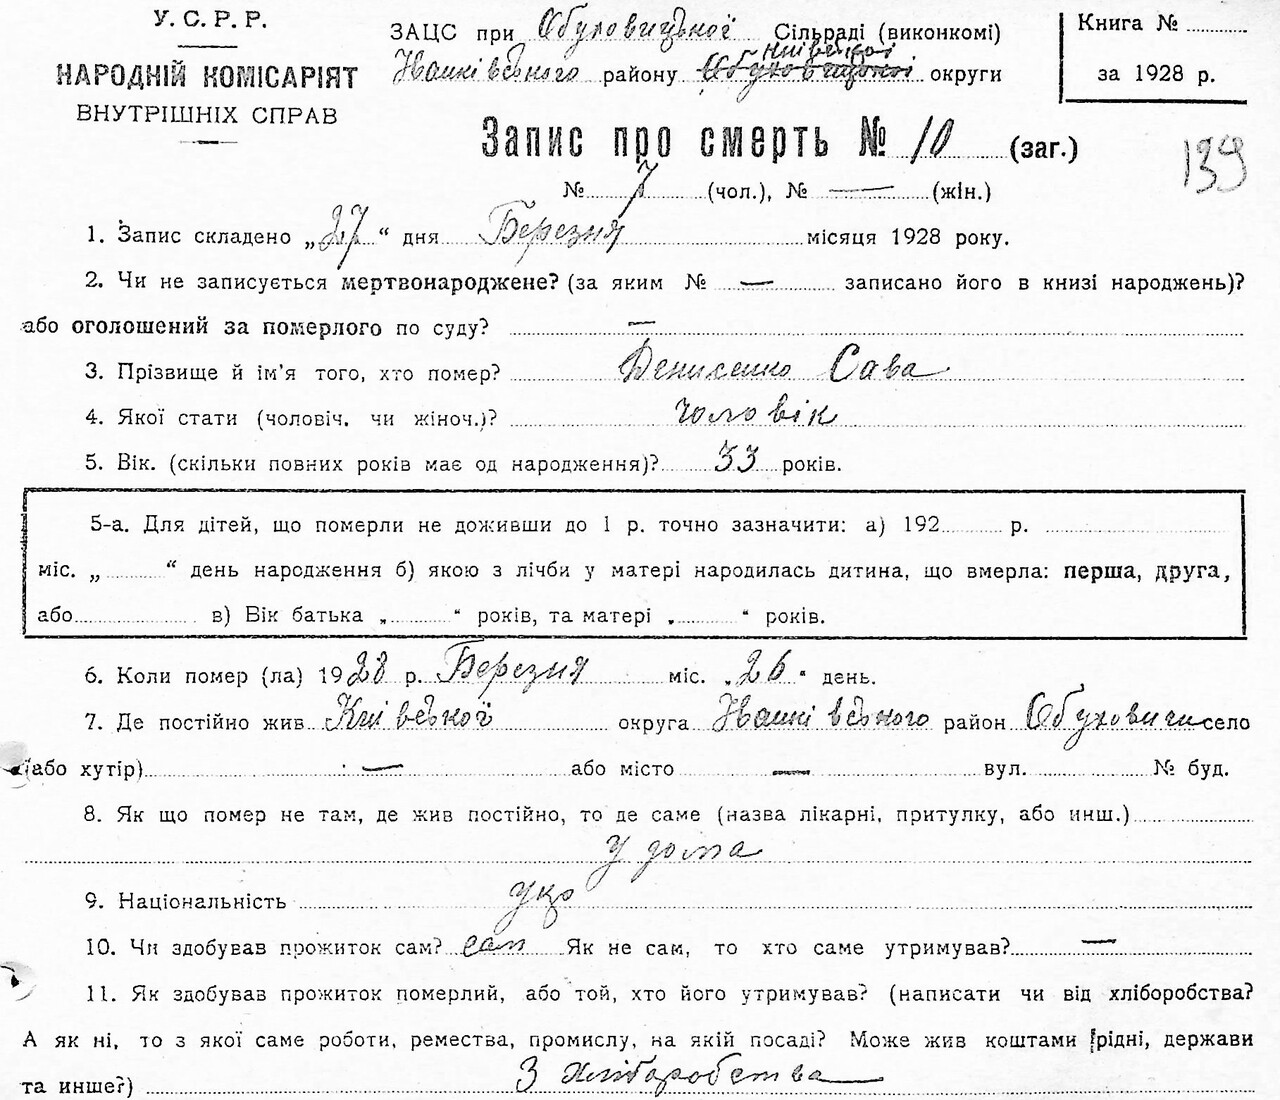 У. С. Р. Р.
НАРОДНІЙ КОМІСАРІЯТ
ВНУТРІШНІХ СПРАВ
ЗАЦС при Обуховицької Сільраді (виконкомі)
Київської
Іванківського району Обуховицької округи
Книга №
за 1928 р.
Запис про смерть № 10 (заг.)
139
№ 7 (чол.), № — (жін.)
1. Запис складено „27“ дня Березня місяця 1928 року.
2. Чи не записується мертвонароджене? (за яким № — записано його в книзі народжень)?
або оголошений за померлого по суду? —
3. Прізвище й ім'я того, хто помер? Денисенко Сава
4. Якої стати (чоловіч. чи жіноч.)? чоловік
5. Вік. (скільки повних років має од народження)? 33 років.
5-а. Для дітей, що померли не доживши до 1 р. точно зазначити: а) 192 р.
міс. „ “ день народження б) якою з лічби у матері народилась дитина, що вмерла: перша, друга,
або в) Вік батька „ “ років, та матері „ “ років.
6. Коли помер (ла) 1928 р. Березня міс. „26“ день.
7. Де постійно жив Київської округа Іванківського район Обуховичи село
(або хутір) — або місто — вул. № буд.
8. Як що помер не там, де жив постійно, то де саме (назва лікарні, притулку, або инш.)
у дома
9. Національність укр
10. Чи здобував прожиток сам? сам Як не сам, то хто саме утримував? —
11. Як здобував прожиток померлий, або той, хто його утримував? (написати чи від хліборобства?
А як ні, то з якої саме роботи, ремества, промислу, на якій посаді? Може жив коштами рідні, держави
та инше?) З хліборобства